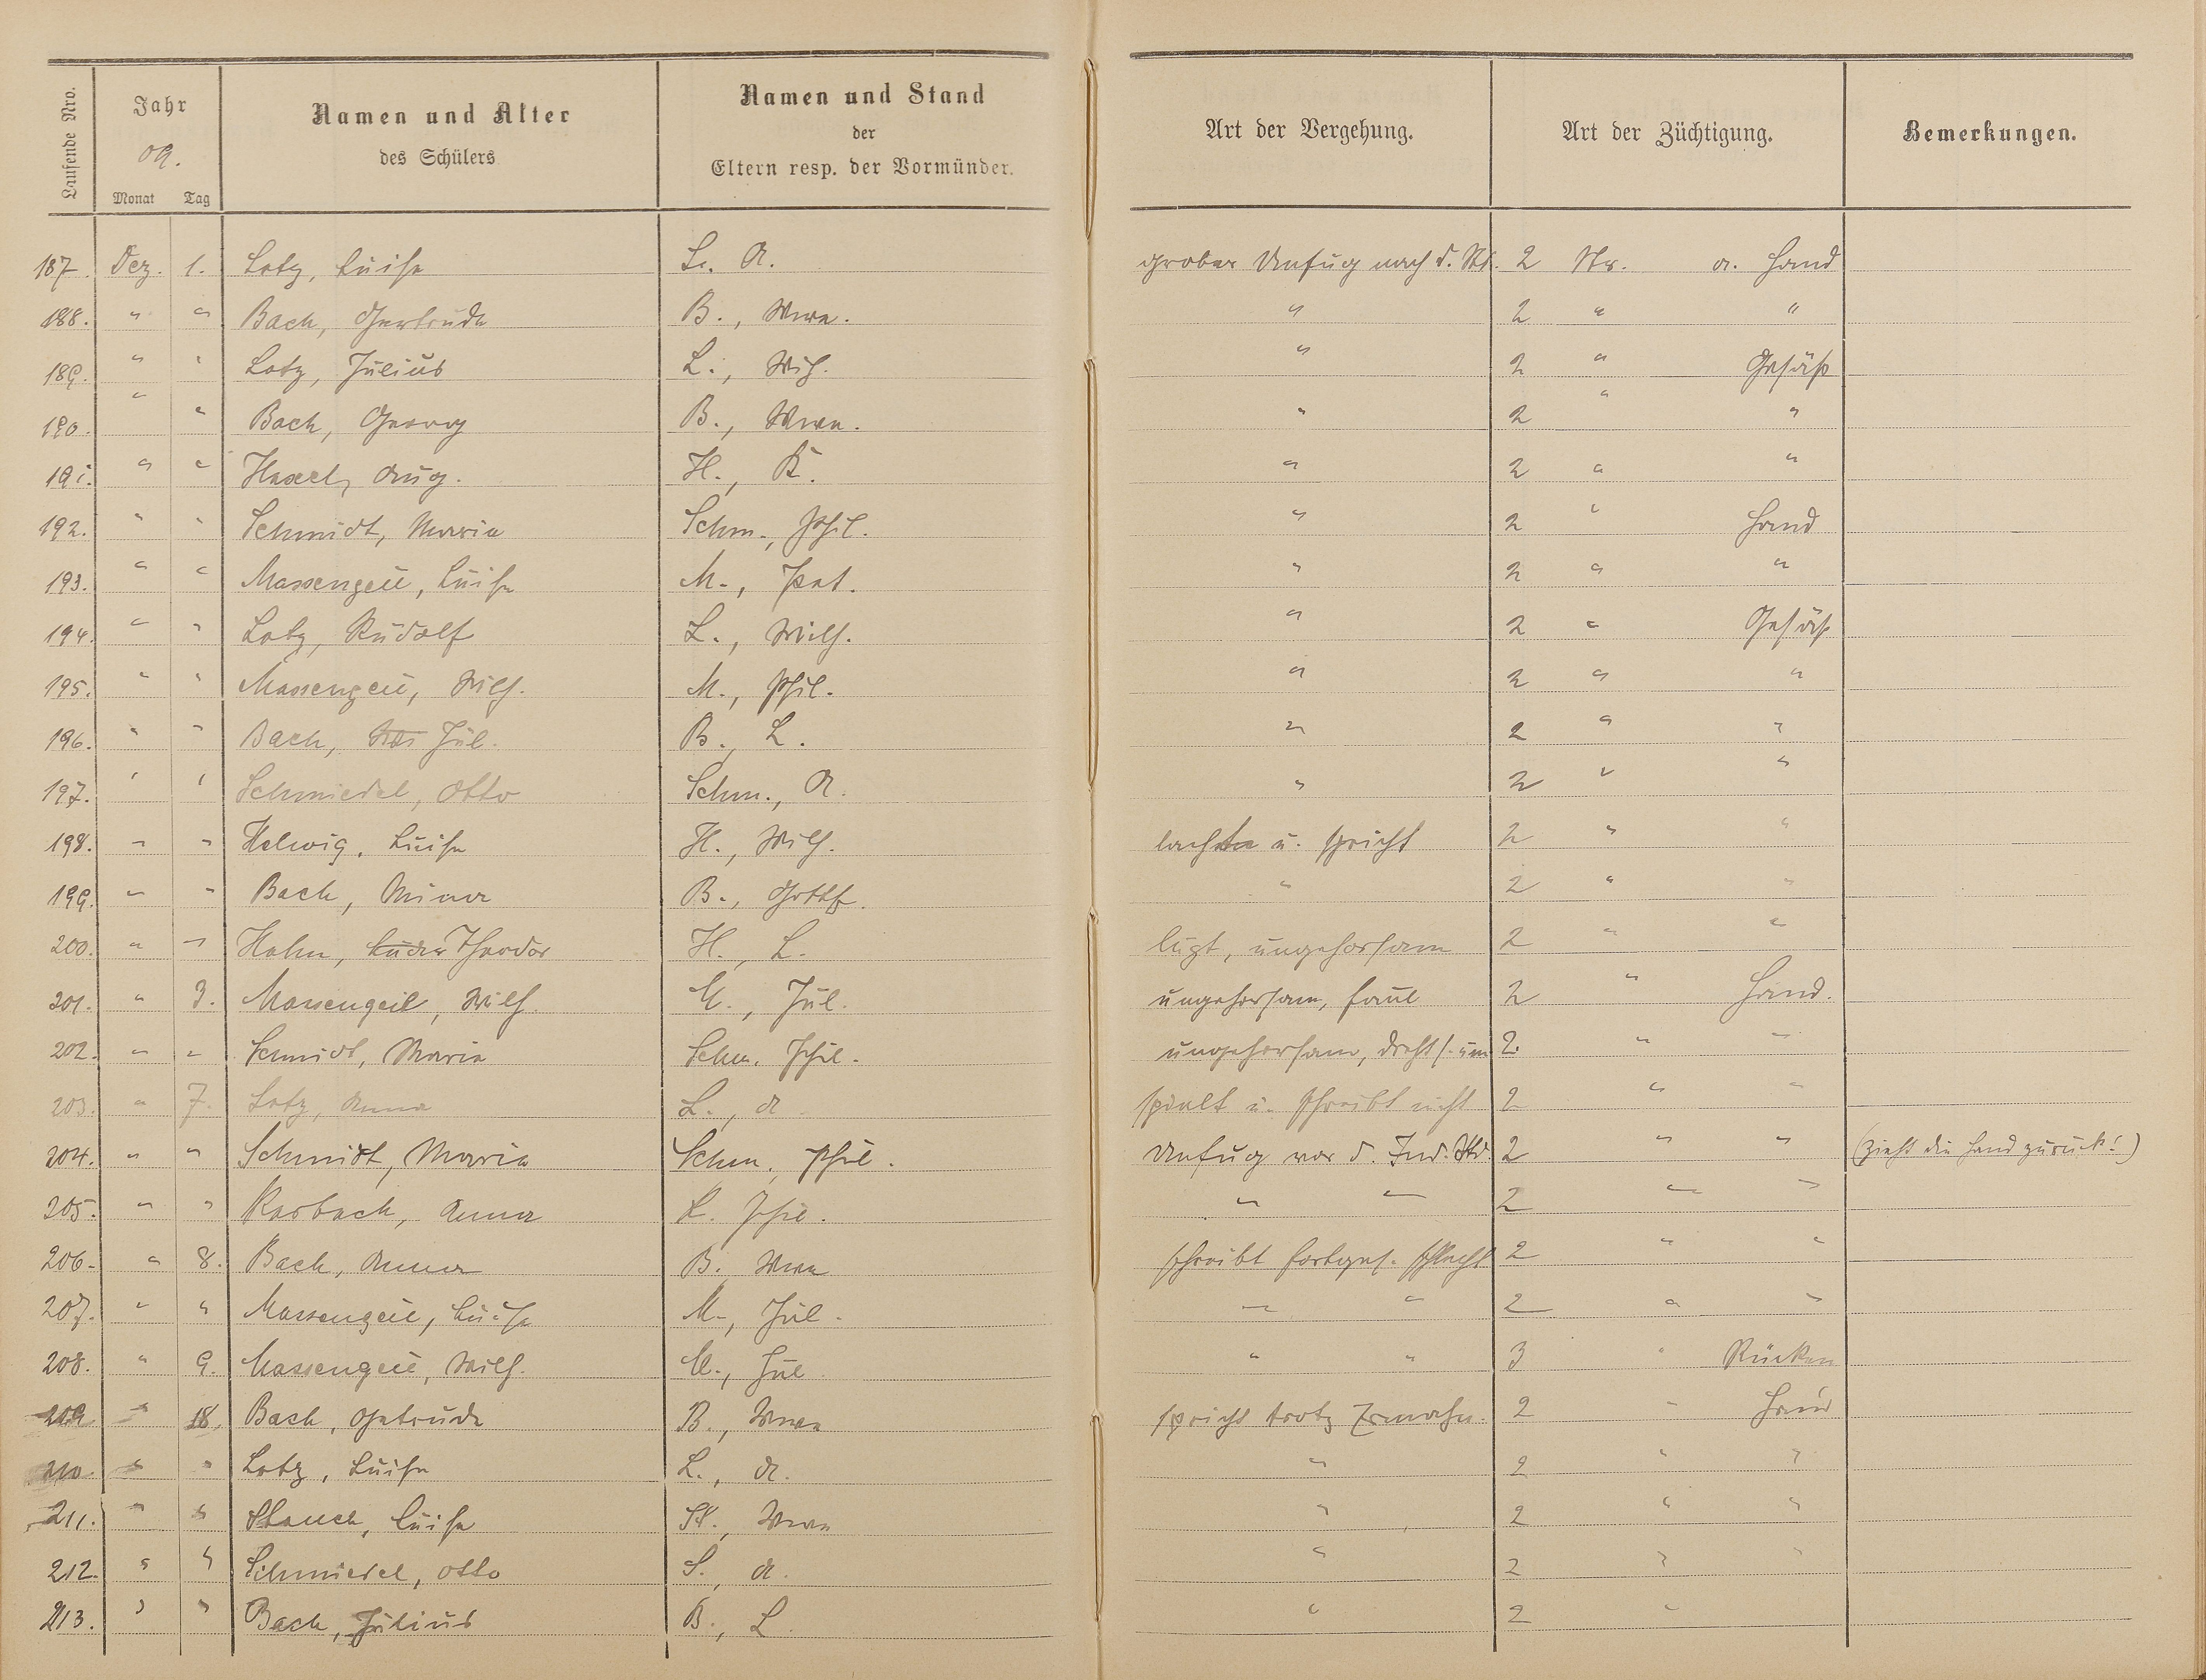 Laufende Nro.
Jahr
09.
Monat Tag
Namen und Alter
des Schülers
Namen und Stand
der
Eltern resp. der Vormünder.
Art der Vergehung.
Art der Züchtigung.
Bemerkungen.
187. Dez. 1. Lotz, Luise L. A. grober Unfug nach d. 2 Str. a. Hand
188. " " Bach, Gertrude B., Wwe. " 2 " "
189. " " Lotz, Julius L., Wilh. " 2 " Gesäß
190. " " Bach, Georg B., Wwe. " 2 " "
191. " " Haxel, Aug. H., K. " 2 " "
192. " " Schmidt, Maria Schm., Phil. " 2 " Hand
193. " " Massengeil, Luise M., Pet. " 2 " "
194. " " Lotz, Rudolf L., Wilh. " 2 " Gesäß
195. " " Massengeil, Wilh. M., Phil. " 2 " "
196. " " Bach, Jul. B., L. " 2 " "
197. " " Schmiedel, Otto Schm., A. " 2 " "
198. " " Helwig, Luise H., Wilh. lacht u. spricht 2 " "
199. " " Bach, Mina B., Gotth. " 2 " "
200. " " Hahn, Theodor H., L. lügt, ungehorsam 2 " "
201. " 3. Massengeil, Wilh. M., Jul. ungehorsam, faul 2 " Hand.
202. " " Schmidt, Maria Schm. Phil. ungehorsam, dreht s. um 2. " "
203. " 7. Lotz, Anna L., A. spielt u. schreibt nicht 2 " "
204. " " Schmidt, Maria Schm., Phil. Unfug vor d. Ind. Std. 2 " " (zieht die Hand zurück!)
205. " " Karbach, Anna K. Phil. " " 2 " "
206. " 8. Bach, Anna B. Wwe schreibt fortges. schlecht 2 " "
207. " " Massengeil, Luise M., Jul. " " 2 " "
208. " 9. Massengeil, Wilh. M., Jul " " 3 " Rücken
209 " 18. Bach, Getrude B., Wwe spricht trotz Ermahn. 2 " Hand
210. " " Lotz, Luise L., A. " 2 " "
211. " " Stauch, Luise St., Wwe " 2 " "
212. " " Schmiedel, Otto S., A. " 2 " "
213. " " Bach, Julius B., L " 2 "